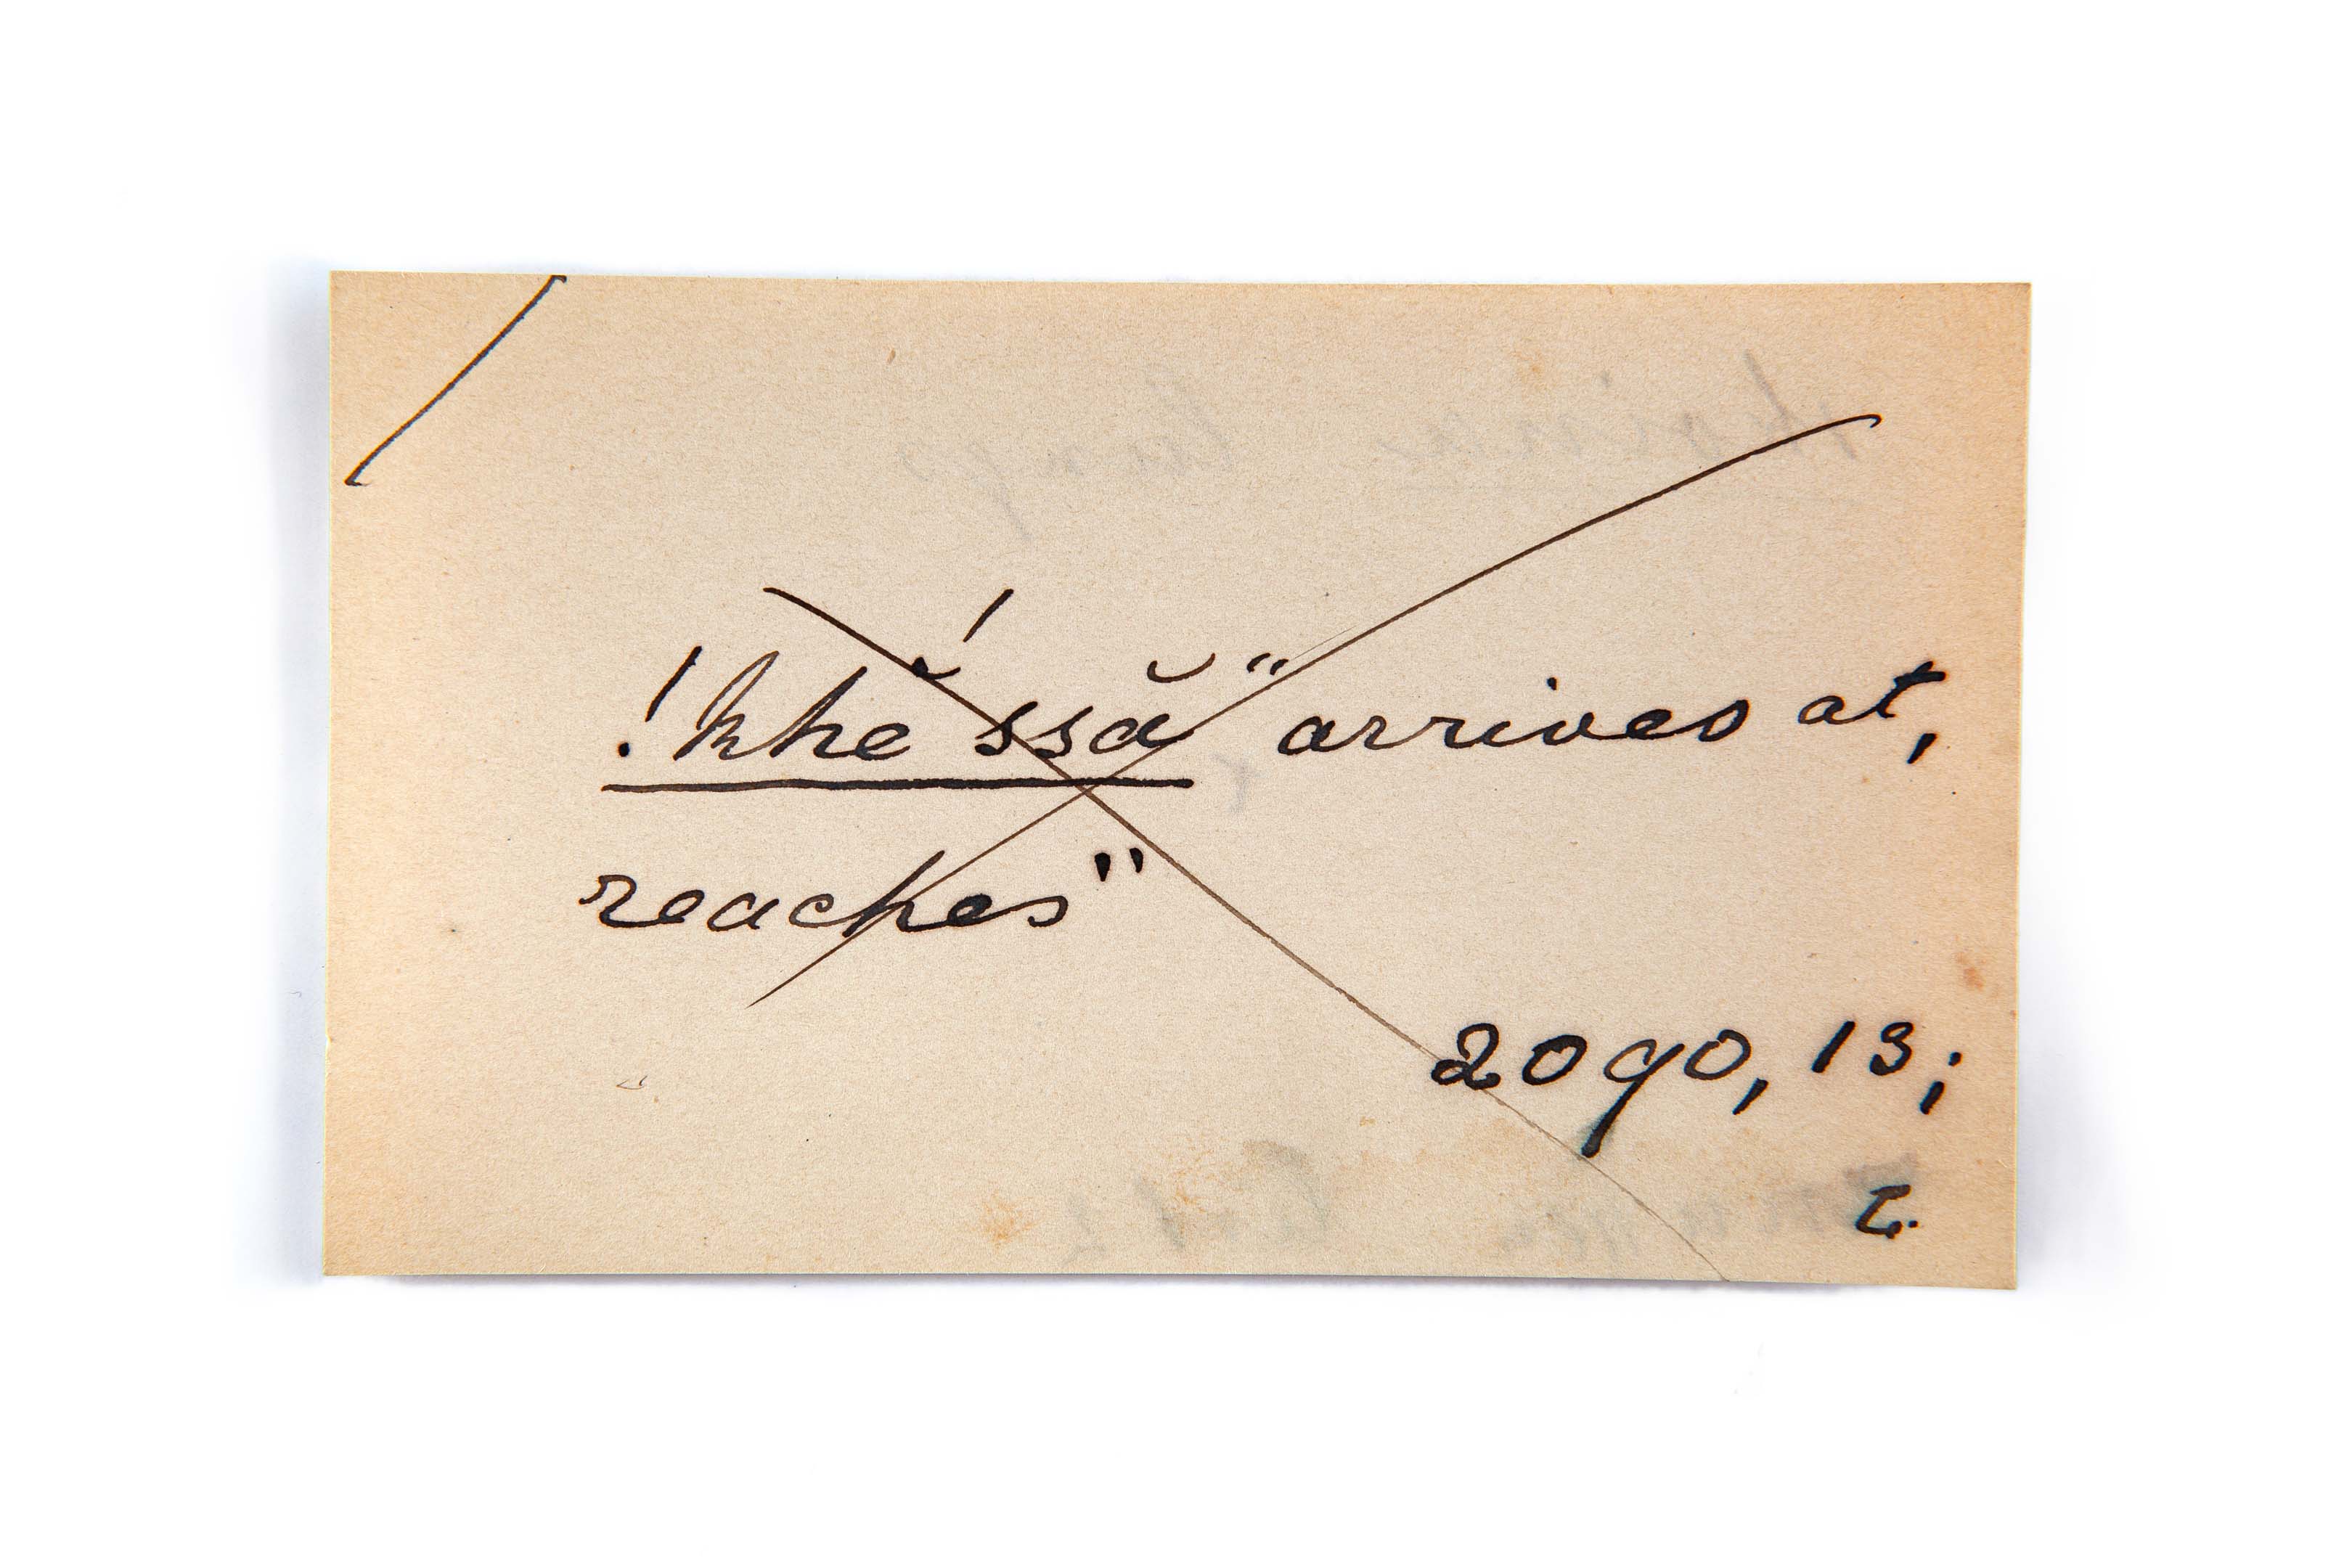 !khĕ´ssă “arrives at,
reaches"
2090, 13;
L.